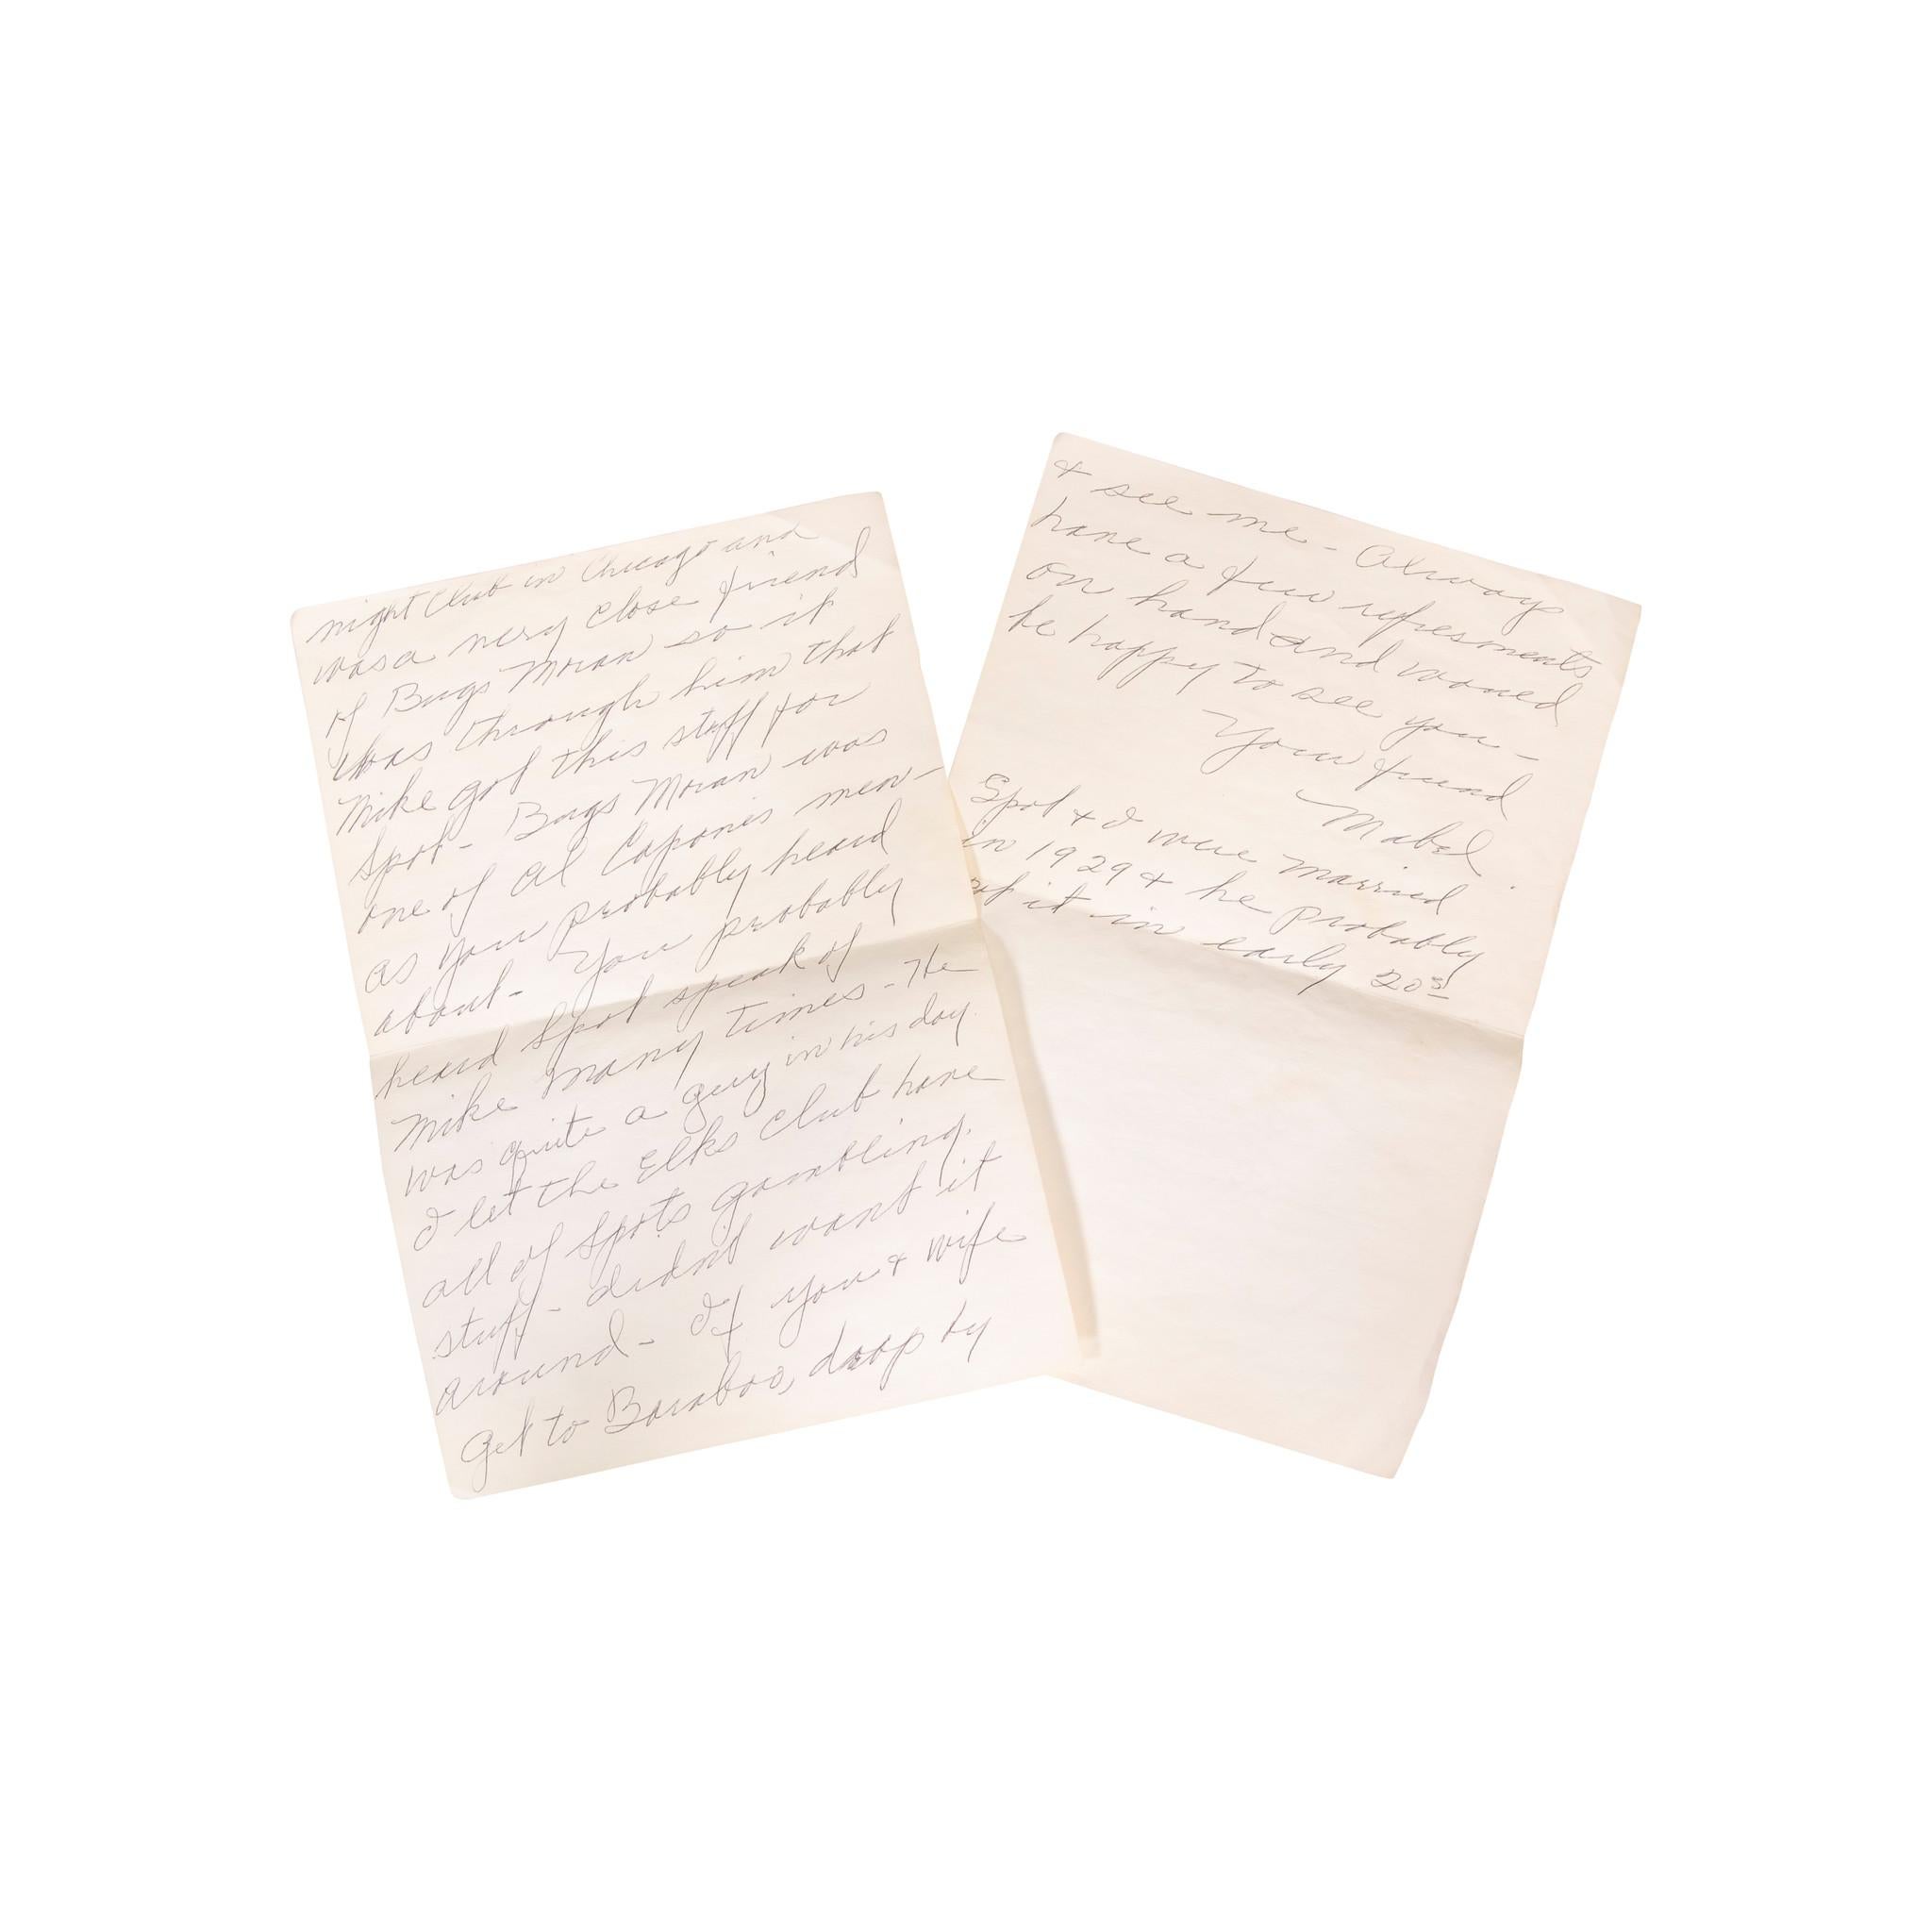 night Club in Chicago and
was a very close friend
of Bugs Moran so it
was through him that
Mike got this stuff for
Spot - Bugs Moran was
one of Al Capones men -
as you probably heard
about - You probably
heard Spot speak of
Mike many times - He
was quite a guy in his day.
I let the Elks Club have
all of Spots gambling.
stuff - didnt want it
around - If you & wife
get to Baraboo, drop by
& see me - Always
have a few refresments
on hand and woued
be happy to see you -
Your friend
Mabel
Spot & I were married
in 1929 & he probably
it in early 20s